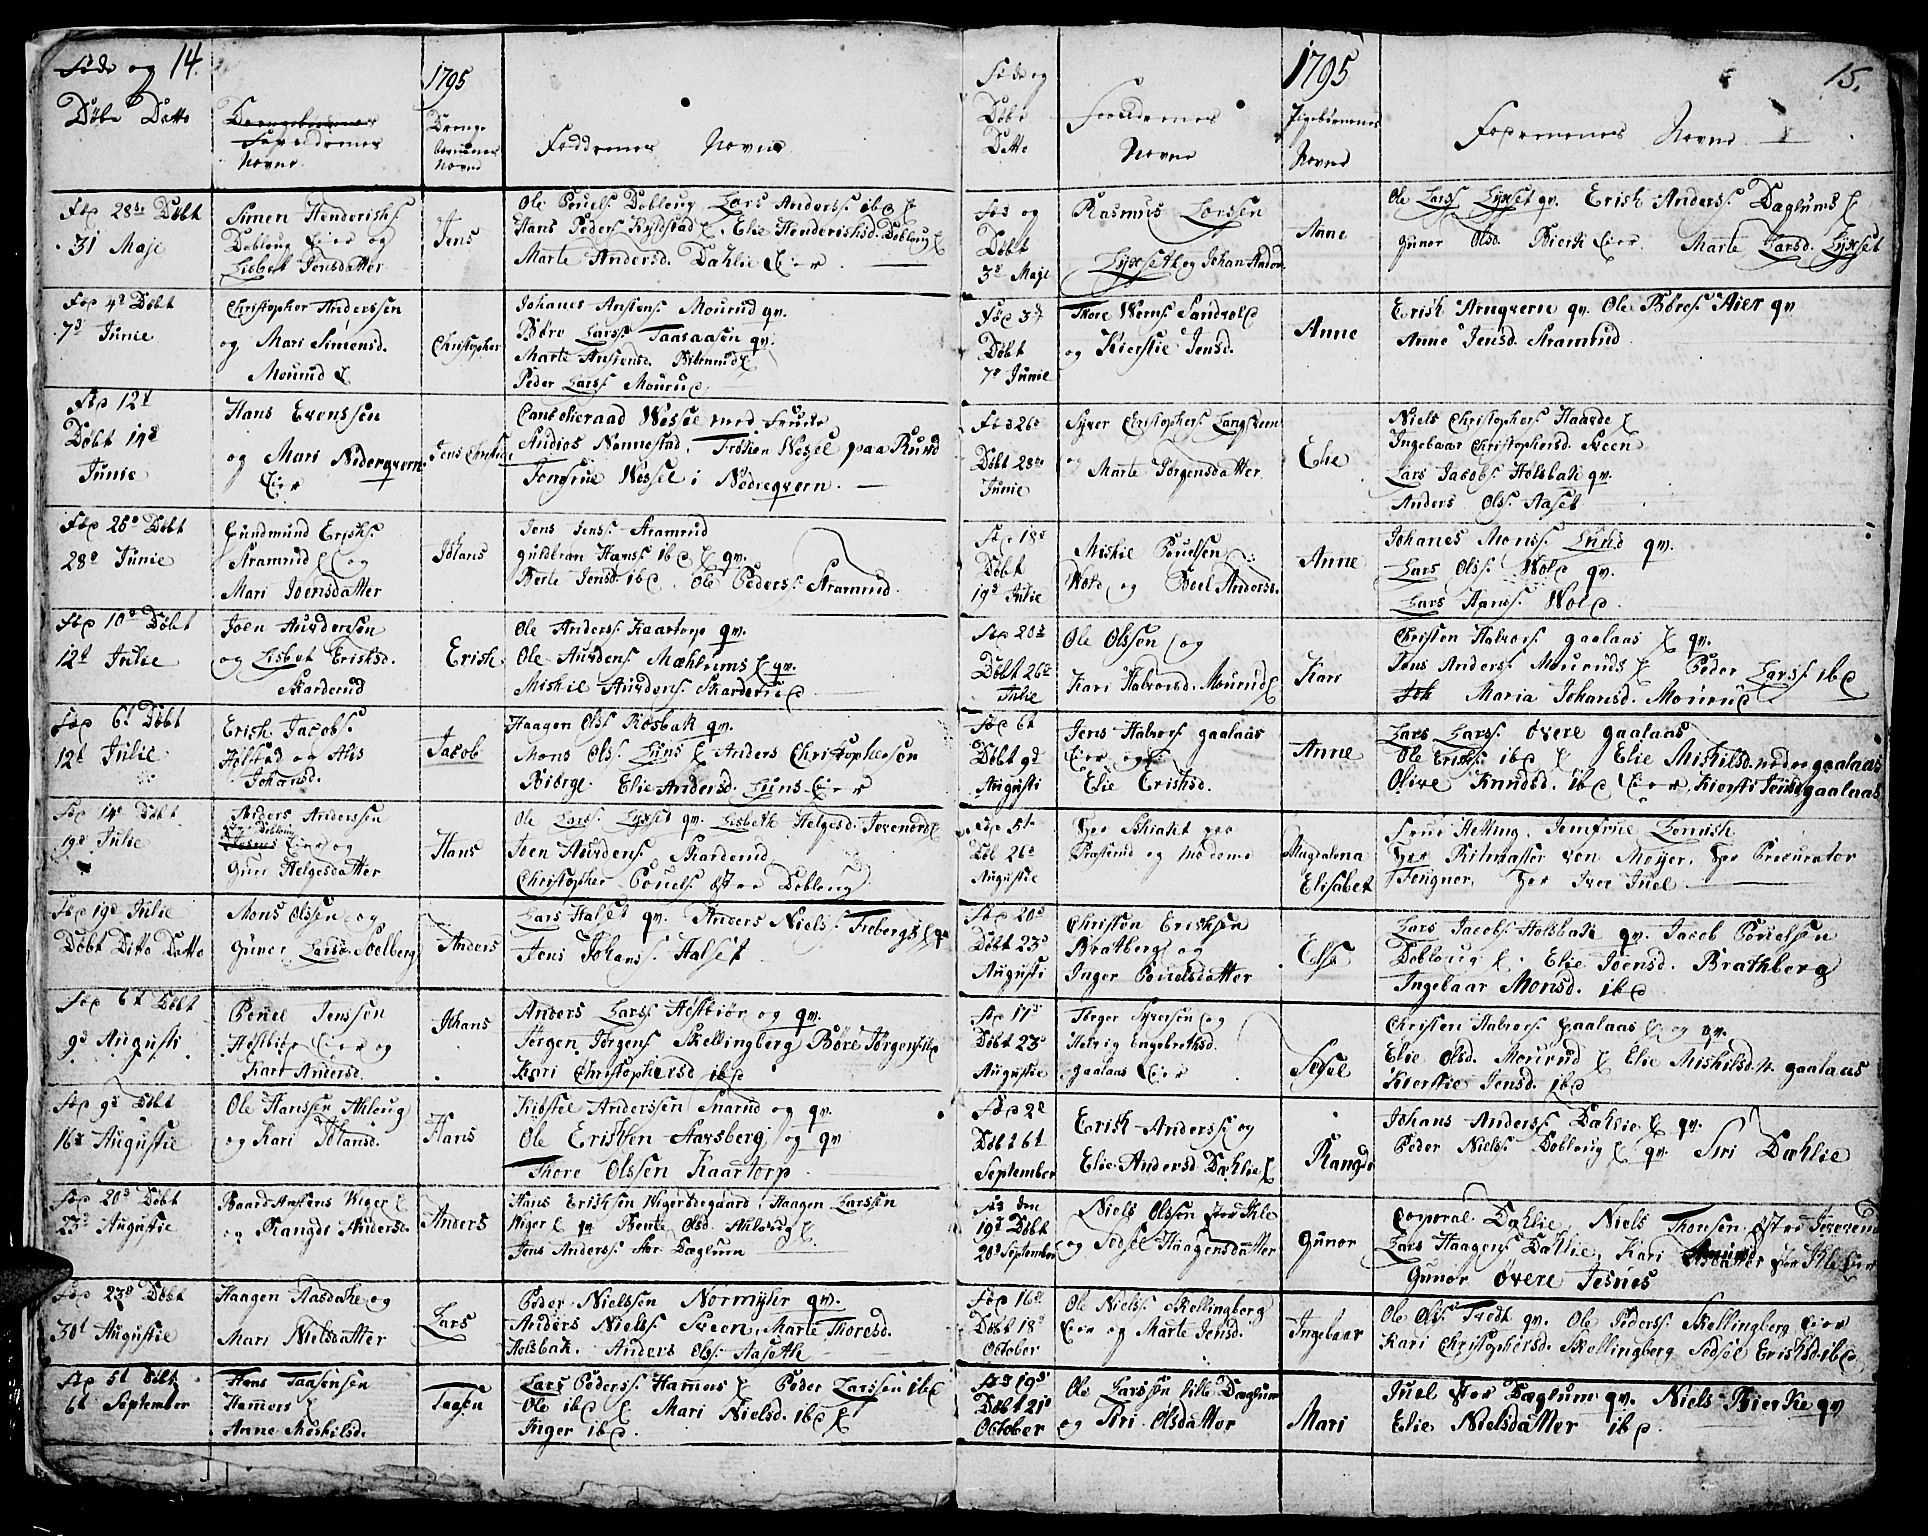 Føde og 14.
Døbe Datto
Forældrenes
Navne
1795
Drenge
børnenes
Navne
Faddrenes Navne
Fød 28de Døbt
31 Maje
Simen Henderichs
Dobloug Eier og
Lisbett Jensdatter
Jens
Ole Pouels Dobloug Lars Anderss. ibd
Hans Peders Kyldstad E. Elie Henderichsd. Dobloug E
Marte Andersd. Dahlie Eier
Fød 4d Døbt
7d Junie
Christopher Anderssen
og Mari Simensd.
Mourud E
Christopher
Johanes Anstens. Mourud qv.
Børe Larss. Taasaasen qv.
Marte Anstensd.
Peder Larss. Mourud
Fød 12t
Døbt 14d
Junie
Hans Evenssen
og Mari Nederqvern
Eier
Jens Christian
Cancelieraad Wessel med Frue
Audios Nannestad, Frøken Wessel paa Rund
Jomfrue Wessel i Nedreqvern.
Fød 26d Døbt
28d Junie
Gundmund Erichs.
Aramrud E og
Mari Joensdatter
Johans
Jens Jenss. Aramrud
Guldbran Hanss. ibd E qv.
Berte Jensd. ibd. Ole Peders. Aramrud.
Fød 10d Døbt
12t Julie
Joen Aurdensen
og Lisbet Erichsd.
Skarderud
Erich
Ole Anders. Kaartorp qv.
Ole Aurdens. Mæhlums E qv.
Miskil Aurdens. Skarderud
Fød 6t Døbt
12t Julie
Erich Jacobs.
Holstad og
Johansd.
Jacob
Haagen Ols. Rosbak qv.
Mons Ols. Lund E Anders Christophersen
Biørge. Elie Andersd. Lunds Eier
Fød 14d Døbt
19d Julie
Anders Anderssen
Dobloug
Eier og
Guri Helgesdatter
Hans
Ole Larss. Lyxset qv. Lisbeth Helgesd.
Joen Aurdens. Skarderud
Christopher Pouels. østre Dobloug
Fød 19d Julie
Døbt Ditto Datto
Mons Olssen og
Guner Larsd. Soelberg
Anders
Lars Halset qv. Anders Niels. Frebergs E qv
Jens Johans. Halset
Fød 6t Døbt
9d Augusti
Pouel Jenssen
Høstbiør Eier og
Kari Andersd.
Johans
Anders Larss. Høstbiør og qv.
Jørgen Jørgens. Skellingberg Børe Jørgens. ibd
Kari Christophersd ibd
Fød 9d Døbt
16d Augustie
Ole Hanssen Ahloug
og Kari Johansd.
Hans
Kiøstel Anderssen Snarud og qv.
Ole Erichsen Aarsberg og qv
Thore Olssen Kaartorp
Fød 20d Døbt
23d Augustie
Baard Anstens Wiger E
og Rangdi Andersd.
Anders
Hans Erichsen Wigersdegaard, Haagen Larssen
Wiger E qv Bente Olsd.
Jens Anderss. Stor Dæglum
Fød 23d Døbt
30t Augustie
Haagen Aasdake og
Mari Nielsdatter
Lars
Peder Nielssen Normyhr qv.
Anders Niels. Sveen, Marte Thoresd.
Holsbak. Anders Ols. Aaseth
Fød 5t Døbt
6t September
Hans Taasensen
Hammers E
Anne Meskilsd.
Taasen
Lars Peders. Hammers E Peder Larssen ibd
Ole ibd E Mari Nielsd. ibd E
Inger ibd.
15.
Føde og
Døbe
Datto
Forældrenes
Navne
1795
Pigebørnenes
Navne
Faddrenes Navne
Fød og
Døbt
3d Maje
Rasmus Larssen
Lyxseth og Johan
Anne
Ole Larss. Lyxset qv. Erich Anders. Daglums E
Gunor Olsd. Bierk Eier. Marte Larsd. Lyxset
Fød 3d
Døbt
7d Junie
Thore Sandvold
og Kierstie Jensd.
Anne
Erich Arnqvern qv. Ole Børes. Aier qv
Anne Jensd. Aramrud
Fød 26d
Døbt 28de
Junie
Syver Christophers. Langsveen
og
Marte Jørgensdatter
Elie
Niels Christophers. Haavde E
Ingebaar Christophersd. Sveen
Lars Jacobs. Holsbak qv.
Anders Ols. Aaset
Fød 18d
Døbt
19d Julie
Miskil Pouelsen
Wold og Beel Andersd.
Anne
Johanes Mons. Lund qv.
Lars Ols. Wold qv.
Lars Hans. Wold.
Fød 20de
Døbt 26d
Julie
Ole Olssen og
Kari Halvorsd. Mourud E
Kari
Christen Halvors. Gaalaas E qv.
Jens Anders. Mouruds E Peder Larss. ibd
Maria Johansd. Mourud
Fød 6t
Døbt 9d
Augusti
Jens Halvors. Gaalaas
Eier og
Elie Erichsd.
Anne
Lars Larss. Øvere Gaalaas
Ole Erichs. ibd E Elie Miskilsd. nedre Gaalaas
Olive Knudsd. ibd Eier. Kiersti Jensd. Gaalaas
Fød 5te
Døb 26d
Augustie
Herr Schiøtt paa
Præsterud og Madame
Magdalena
Elisabet
Frue Hetting, Jomfrue Lemvish
Herr Ritmæster von Møyer, Herr Procurator
Fougner, Herr Iver Juel.
Fød 20d
Døbt 23d
Augusti
Christen Erichsen
Bratberg og
Inger Pouelsdatter
Else
Lars Jacobs. Holsbak qv. Jacob Pouelsen
Dobloug E. Elie Joensd. Brathberg
Ingebaar Monsd. ibd
Fød 17d
Døbt 23d
Augustie
Torger Syversen og
Helvig Engebretsd.
Gaalaas Eier
Sedsel
Christen Halvors. Gaalaas E og qv.
Elie Olsd. Mourud E Elie Miskilsd. N. Gaalaas
Kierstie Jensd. ibd
Fød 2d
Døbt 6t
September
Erich Anderss. og
Elie Andersd Dæhlie E
Rangdi
Johans Anders. Dæhlie E qv.
Peder Niels. Dobloug E qv. Siri Dæhlie
Fød den
19d Døbt
20d September
Niels Olssen Stor Ihle
og Sedsel Haagensdatter
Gunor
Corporal Dæhlie, Niels Thorsen østre
Lars Haagens. Dæhlie, Kari stor Ihle Eier
Gunor Øvere Jesnes
Fød 16d
Døbt 18d
October
Ole Niels. Skellingberg
Eier og Marte Jensd.
Ingebaar
Ole Ols. Tredt qv. Ole Peders. Skellingberg Eier
Kari Christophersd. Skellingberg Sedsel Erichsd. ibd
Fød 19d
Døbt 21d
October
Ole Larssen lille Dæglum
og Siri Olsdatter
Mari
Juel stor Dæglum qv. Niels Bierke qv
Elie Nielsdatter ibd.